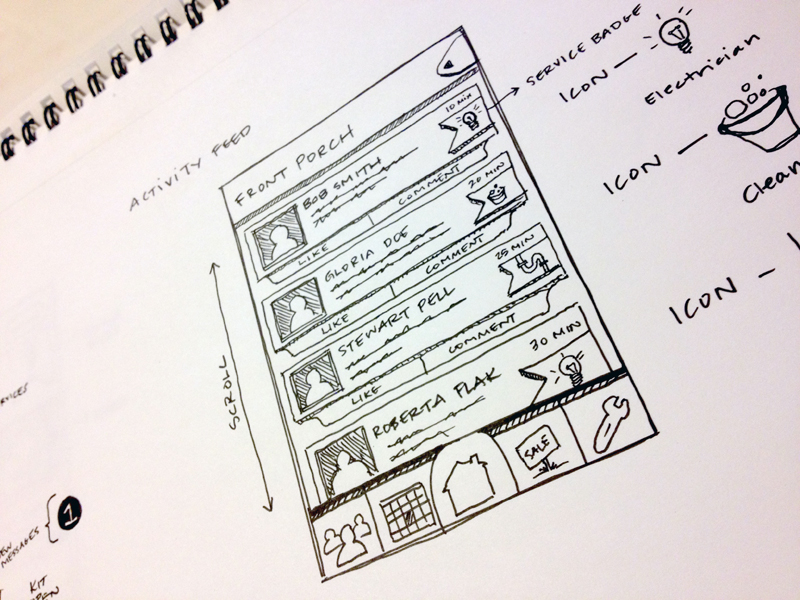 ACTIVITY FEED
FRONT PORCH
10 MIN
BOB SMITH
LIKE COMMENT
20 MIN
GLORIA DOE
LIKE COMMENT
25 MIN
STEWART PELL
LIKE COMMENT
30 MIN
ROBERTA FLAK
SALE
SCROLL
SERVICE BADGE
ICON —
Electrician
ICON —
Clean
ICON —
1
MESSAGES
KIT